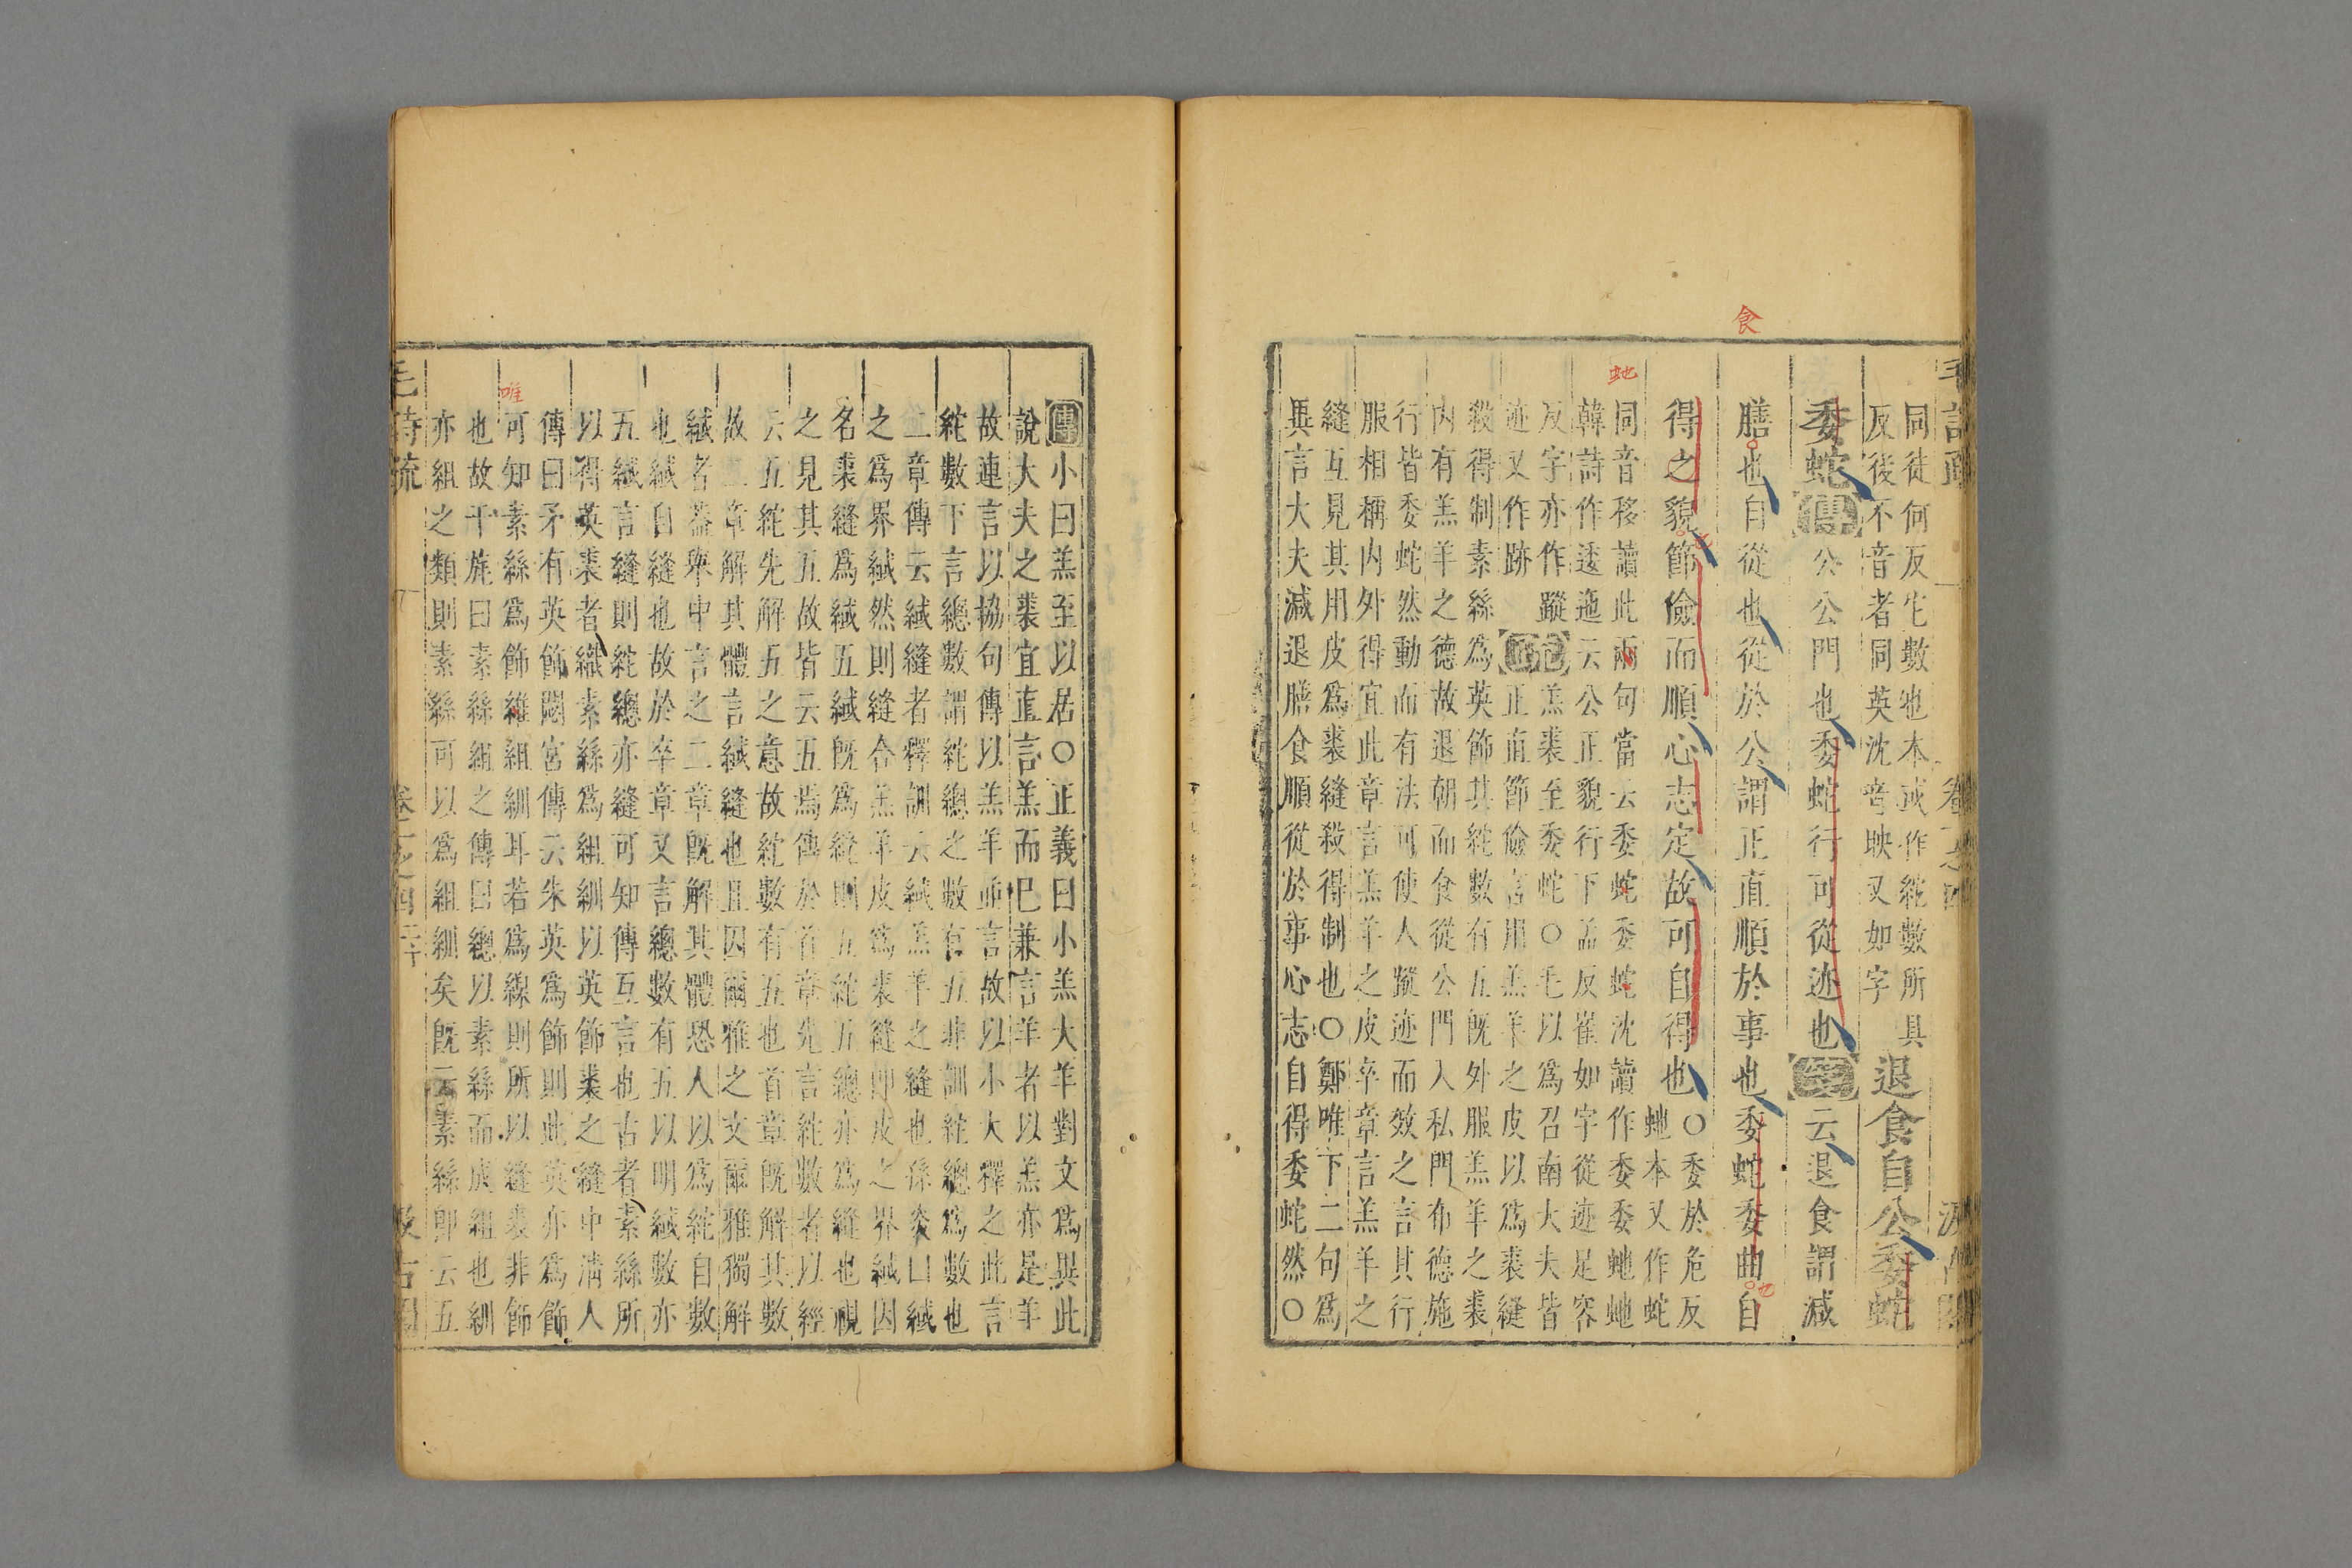 同徒何反它數也本或作紽數所具
反後不音者同英沈音映又如字
退食自公委蛇
委蛇傳公公門也委蛇行可從迹也箋云退食謂減
膳也自從也從於公謂正直順於事也委蛇委曲自
得之貌節儉而順心志定故可自得也
○委於危反
虵本又作蛇
同音移讀此兩句當云委蛇委蛇沈讀作委委虵虵
韓詩作逶迤云公正貌行下孟反崔如字從迹足容
反字亦作蹤
迹又作跡
正義羔裘至委蛇○毛以爲召南大夫皆
正直節儉言用羔羊之皮以爲裘縫
殺得制素絲爲英飾其紽數有五既外服羔羊之裘
内有羔羊之德故退朝而食從公門入私門布德施
行皆委蛇然動而有法可使人蹤迹而效之言其行
服相稱内外得宜此章言羔羊之皮卒章言羔羊之
縫互見其用皮爲裘縫殺得制也○鄭唯下二句爲
異言大夫減退膳食順從於事心志自得委蛇然○
傳小曰羔至以居○正義曰小羔大羊對文爲異此
說大夫之裘宜直言羔而已兼言羊者以羔亦是羊
故連言以協句傳以羔羊並言故以小大釋之此言
紽數下言總數謂紽總之數有五非訓紽總爲數也
二章傳云緎縫者釋訓云緎羔羊之縫也孫炎曰緎
之爲界緎然則縫合羔羊皮爲裘縫即皮之界緎因
名裘縫爲緎五緎既爲縫則五紽五總亦爲縫也視
之見其五故皆云五焉傳於首章先言紽數者以經
云五紽先解五之意故紽數有五也首章既解其數
故二章解其體言緎縫也且因爾雅之文爾雅獨解
緎者蓋舉中言之二章既解其體恐人以爲紽自數
也緎自縫也故於卒章又言總數有五以明緎數亦
五緎言縫則紽總亦縫可知傳互言也古者素絲所
以得英裘者織素絲爲組紃以英飾裘之縫中清人
傳曰矛有英飾閟宮傳云朱英爲飾則此英亦爲飾
可知素絲爲飾維組紃耳若爲線則所以縫裘非飾
也故干旄曰素絲組之傳曰總以素絲而成組也紃
亦組之類則素絲可以爲組紃矣既云素絲即云五
毛詩疏
卷一之四
三十
汲古閣
食
虵
唯
也
也